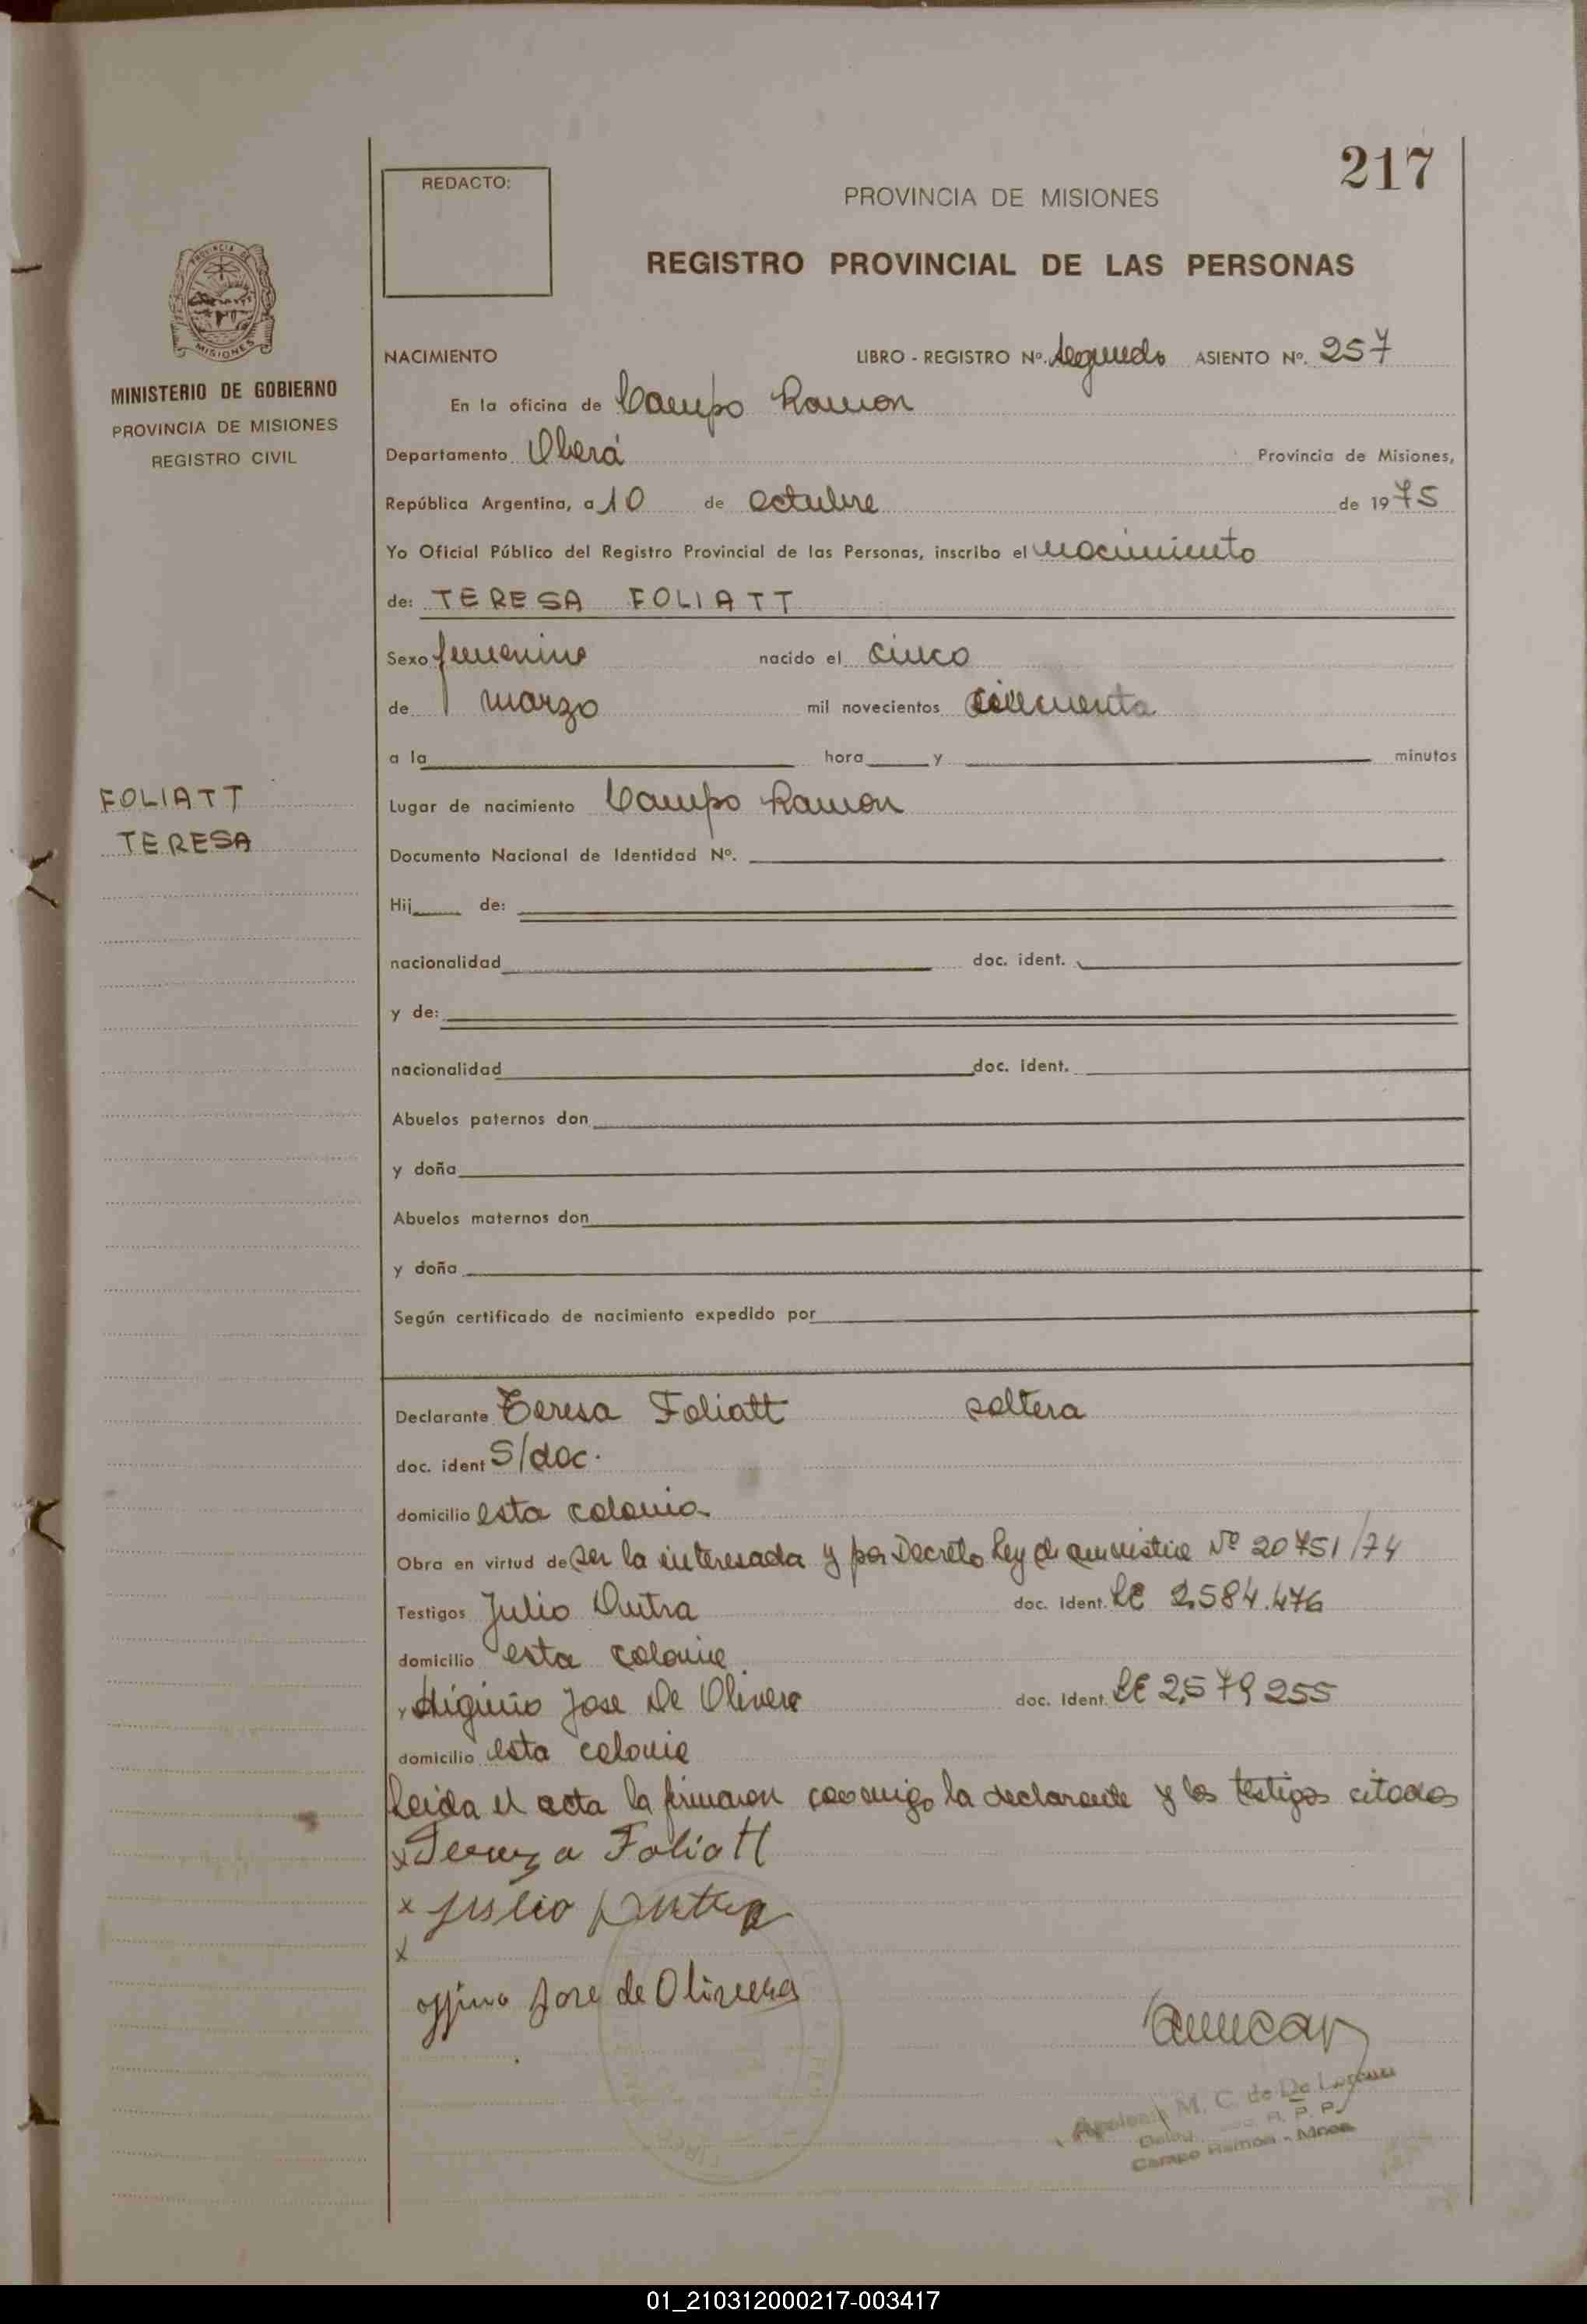 217
REDACTO:
PROVINCIA DE MISIONES
REGISTRO PROVINCIAL DE LAS PERSONAS
PROVINCIA DE
MISIONES
MINISTERIO DE GOBIERNO
PROVINCIA DE MISIONES
REGISTRO CIVIL
NACIMIENTO LIBRO - REGISTRO Nº. Segundo ASIENTO Nº. 257
En la oficina de Campo Ramon
Departamento Oberá Provincia de Misiones,
República Argentina, a 10 de octubre de 1975
Yo Oficial Público del Registro Provincial de las Personas, inscribo el nacimiento
de: TERESA FOLIATT
Sexo femenino nacido el cinco
de marzo mil novecientos cincuenta
a la hora y minutos
FOLIATT
TERESA
Lugar de nacimiento Campo Ramon
Documento Nacional de Identidad Nº.
Hij de:
nacionalidad doc. ident.
y de:
nacionalidad doc. ident.
Abuelos paternos don
y doña
Abuelos maternos don
y doña
Según certificado de nacimiento expedido por
Declarante Teresa Foliatt soltera
doc. ident S/doc.
domicilio esta colonia
Obra en virtud de ser la interesada y por Decreto Ley de amnistia Nº 20751/74
Testigos Julio Dutra doc. Ident. LE 2.584.476
domicilio esta colonia
y Higinio Jose De Olivera doc. Ident. LE 2.579255
domicilio esta colonia
Leida el acta la firmaron conmigo la declarante y los testigos citados
x Tereza Foliatt
x Julio Dutra
x
Jose de Oliveira
M. C. de De
R. P. P.
Campo Ramon - Mnes
01_210312000217-003417